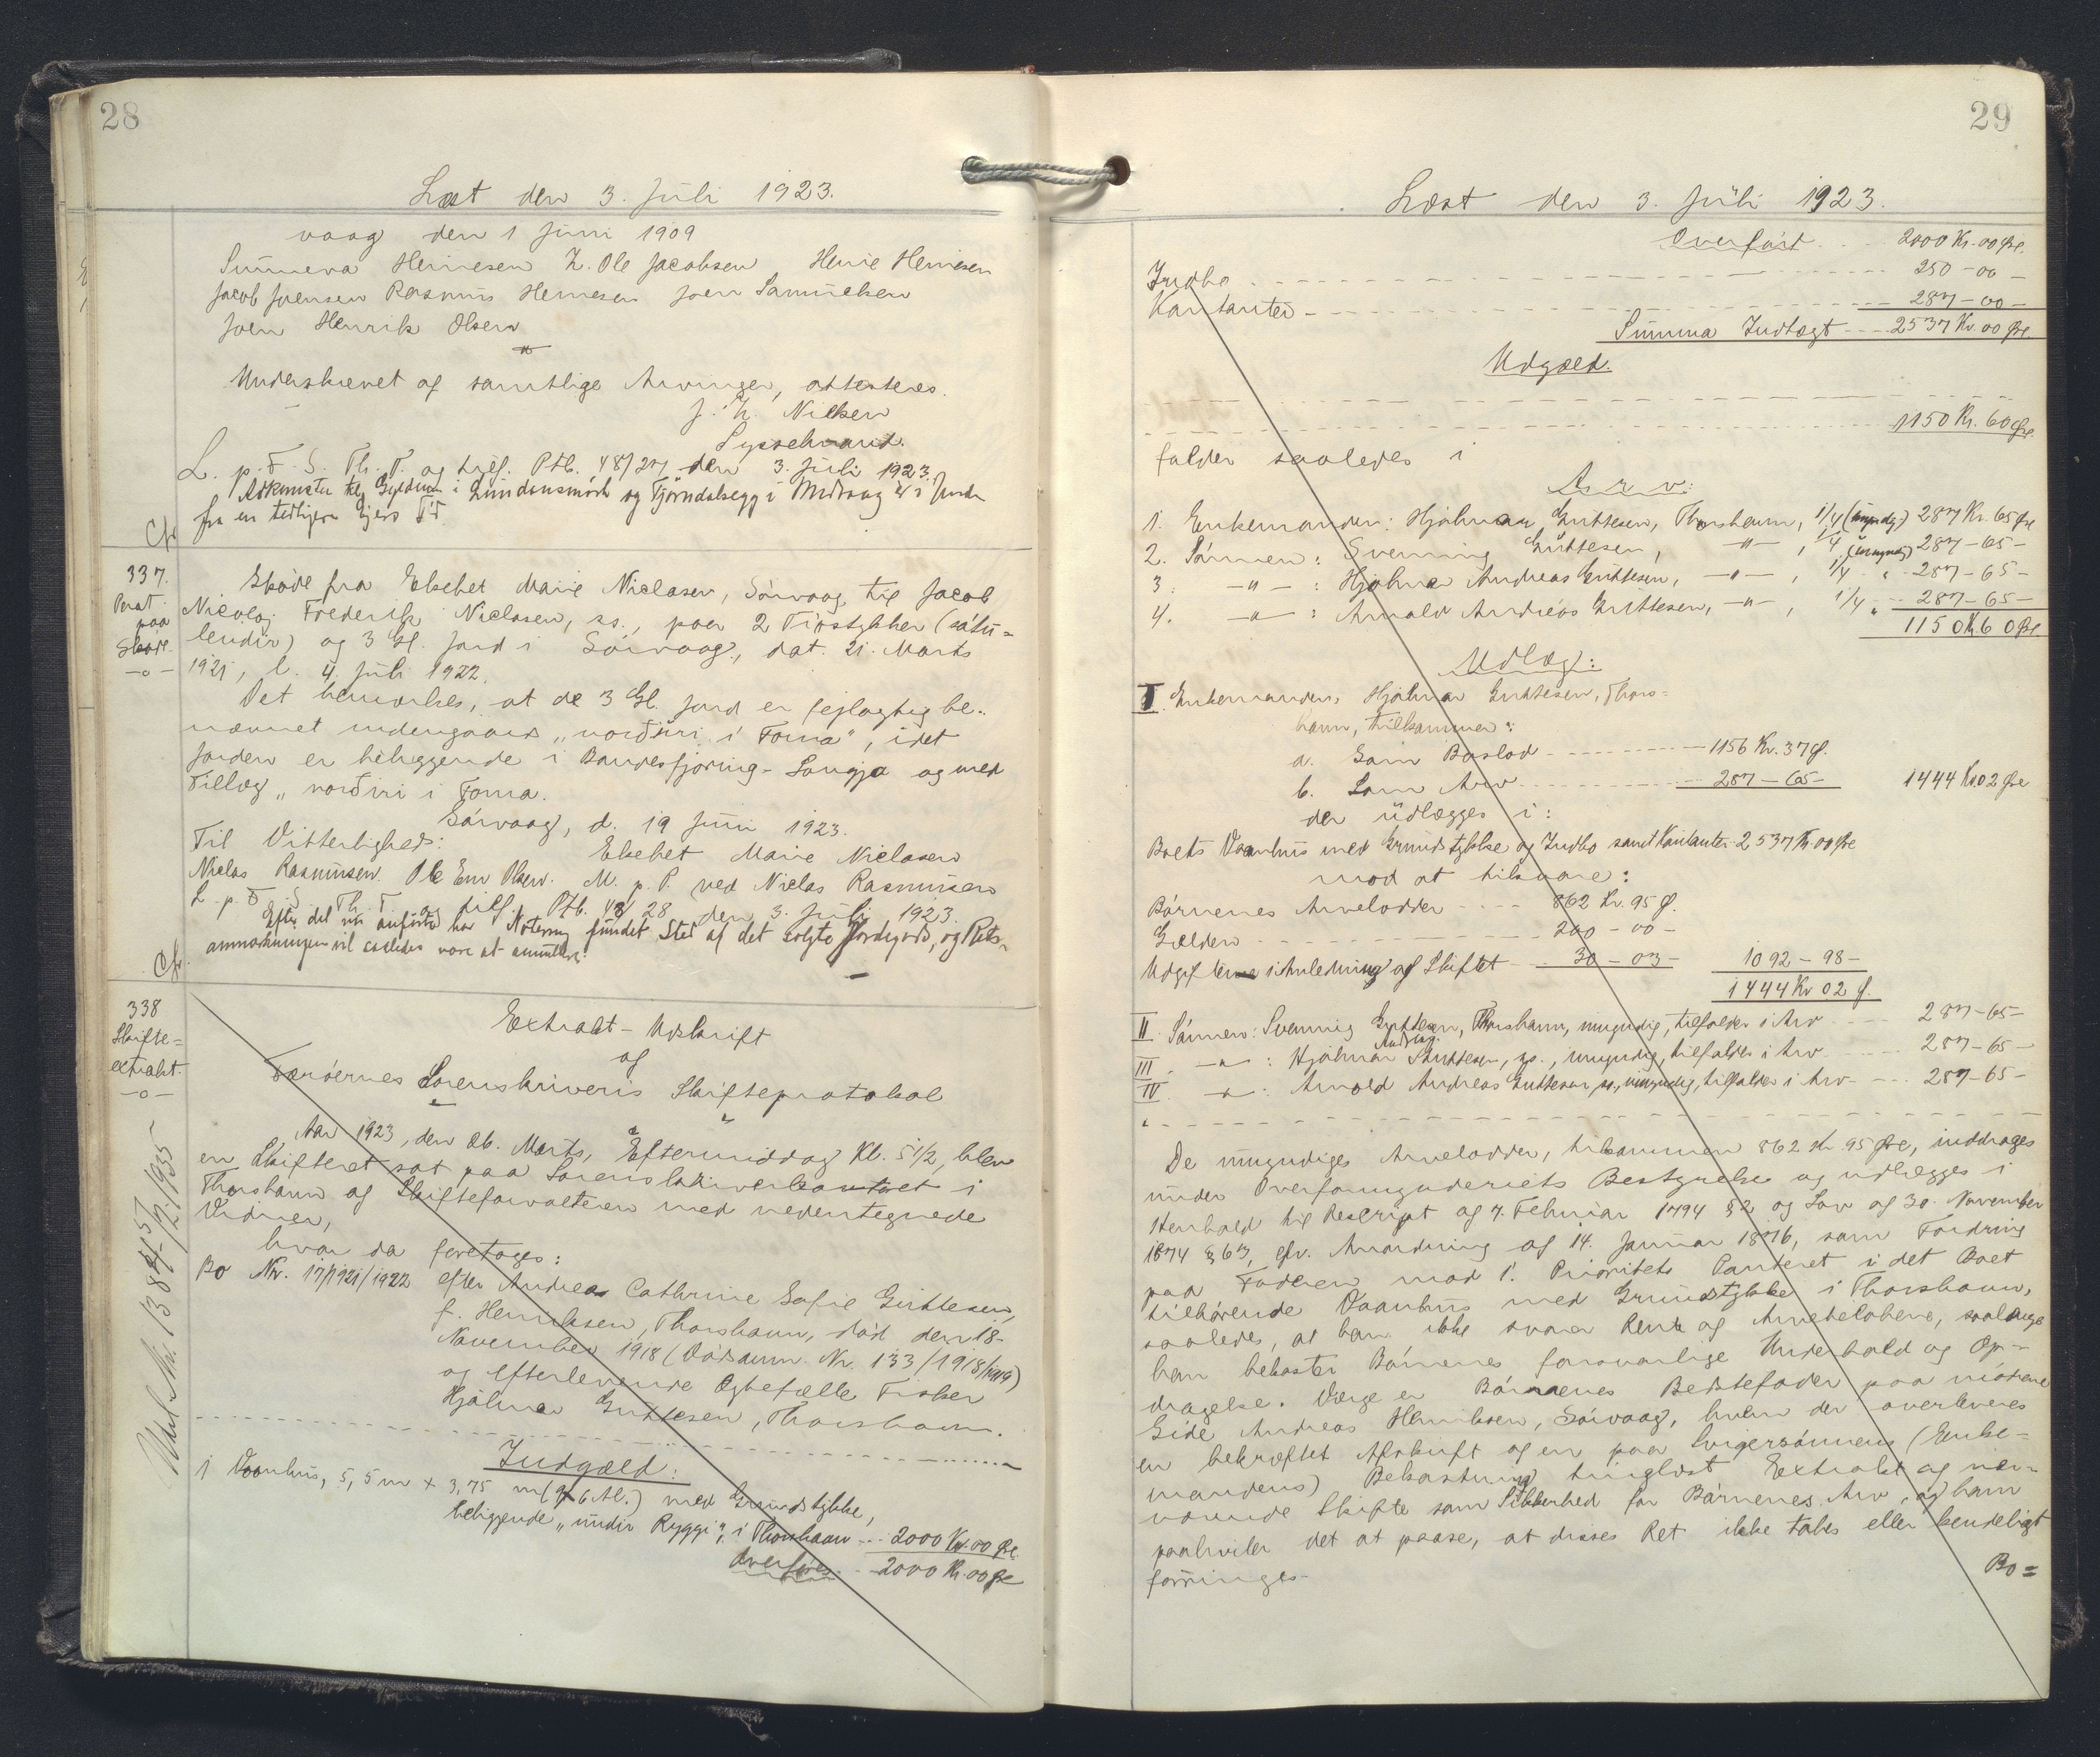 28
Læst den 3. Juli 1923.
vaag den 1 Juni 1909
Sunneva Heinesen Z. Ole Jacobsen Henie Heinesen
Jacob Joensen Rasmus Heinesen Joen Samuelsen
Joen Henrik Olsen
Underskrevet af samtlige Arvinger, attesteres.
J. H. Nielsen
Sysselmand.
L. p. F. S. Th. T. og tilf. Ptb. 48/27 den 3. Juli 1923.
Adkomster til Gyldin i og i Midvaag
fra en tidligere Ejers Tid.
Cfr
337.
Perat.
paa
Skøde.
-o-
Skøde fra Elsebet Marie Niclasen, Sörvaag, til Jacob
Nicolaj Frederik Niclasen, ss., paa 2 Tröstykker (sátu=
lendir) og 3 Gl. Jord i Sörvaag, dat. 21. Marts
1921, l. 4. Juli 1922.
Det bemærkes, at de 3 Gl. Jord er fejlagtig be-
nævnet undengaards „norðuri i Toma", idet
Jorden er beliggende i Bondesfjøring - Langja og med
Tillæg „norðuri i Toma.
Sörvaag, d. 19 Juni 1923.
Til Vitterlighed:
Elsebet Marie Niclasen
Niclas Rasmussen. Ole Em Olsen. M. p. P. ved Niclas Rasmussen
L. p. F. S. Th. T. og tilf. Ptb. 48/28 den 3. Juli 1923.
Efter det nu anførte har Notering fundet Sted af det solgte Jordgods, og Rets-
anmærkningen vil saaledes være at annullere.
Cfr.
338
Skifte=
extrakt.
-o-
Extrakt - Udskrift
af
Færöernes Sorenskriveris Skifteprotokol
Aar 1923, den 26. Marts, Eftermiddag Kl. 5 1/2, blev
en Skifteret sat paa Sorenskriverkontoret i
Thorshavn af Skifteforvalteren med nedentegnede
Vidner,
hvor da foretoges:
Bo Nr. 17/1921/1922 efter Andrea Cathrine Sofie Guttesen,
f. Henriksen, Thorshavn, död den 18-
November 1918 (Dödsanm. Nr. 133/1918/1919)
og efterlevende Ægtefælle Fisker
Hjálmar Guttesen, Thorshavn.
Indgæld:
1 Vaanhus, 5,5 m x 3,75 m (9 x 6 Al.) med Grundstykke,
beliggende „undir Ryggi", i Thorshavn ... 2000 Kr. 00 Øre.
Overføres ... 2000 Kr. 00 Øre
29
Læst den 3. Juli 1923.
Overført ... 2000 Kr. 00 Øre.
Indbo ... 250 - 00 -
Kontanter ... 287 - 00 -
Summa Indtægt ... 2537 Kr. 00 Øre.
Udgæld.
1150 Kr. 60 Øre
falder saaledes i
Arv:
1. Enkemanden: Hjálmar Guttesen, Thorshavn, 1/4 (myndig) 287 Kr. 65 Øre
2. Sönnen: Svenning Guttesen, -"- , 1/4 (umyndig) 287 - 65 -
3. -"- : Hjálmar Andreas Guttesen, -"- , 1/4 " 287 - 65 -
4. -"- : Arnold Andreas Guttesen, -"- , 1/4 " 287 - 65 -
1150 Kr 60 Øre
Udlæg:
I. Enkemanden, Hjálmar Guttesen, Thors=
havn, tilkommer:
a. Som Boslod ... 1156 Kr. 37 Ø.
b. Som Arv ... 287 - 65 - 1444 Kr. 02 Øre
der udlægges i:
Boets Vaanhus med Grundstykke og Indbo samt Kontanter 2537 Kr. 00 Øre
mod at tilsvare:
Börnenes Arvelodder ... 862 Kr. 95 Ø.
Gælden ... 200 - 00 -
Udgifterne i Anledning af Skiftet ... 30 - 03 - 1092 - 98 -
1444 Kr 02 Ø.
II. Sönnen: Svenning Guttesen, Thorshavn, umyndig, tilfalder i Arv ... 287 - 65 -
III. -"- : Hjálmar Andreas Guttesen, ss., umyndig, tilfalder i Arv ... 287 - 65 -
IV. -"- : Arnold Andreas Guttesen, ss., umyndig, tilfalder i Arv ... 287 - 65 -
De umyndiges Arvelodder, tilsammen 862 Kr. 95 Øre, inddrages
under Overformynderiets Bestyrelse og udlægges i
Henhold til Reskript af 7. Februar 1794 § 2 og Lov af 30. November
1874 § 63, cfr. Anordning af 14. Januar 1876, som Fordring
paa Faderen mod 1. Prioritets Panteret i det Boet
tilhörende Vaanhus med Grundstykke i Thorshavn,
saaledes, at han ikke svarer Rente af Arvebelöbene, saalænge
han bekoster Börnenes forsvarlige Underhold og Op-
dragelse. Værge er Börnenes Bedstefader paa mödrene
Side Andreas Henriksen, Sörvaag, hvem der overleveres
en bekræftet Afskrift af en paa Svigersönnens (Enke=
mandens) Bekostning tinglæst Extrakt af nær-
værende Skifte som Sikkerhed for Börnenes Arv, og ham
paahviler det at paase, at disses Ret ikke tabes eller kendeligt
forringes.
Bo=